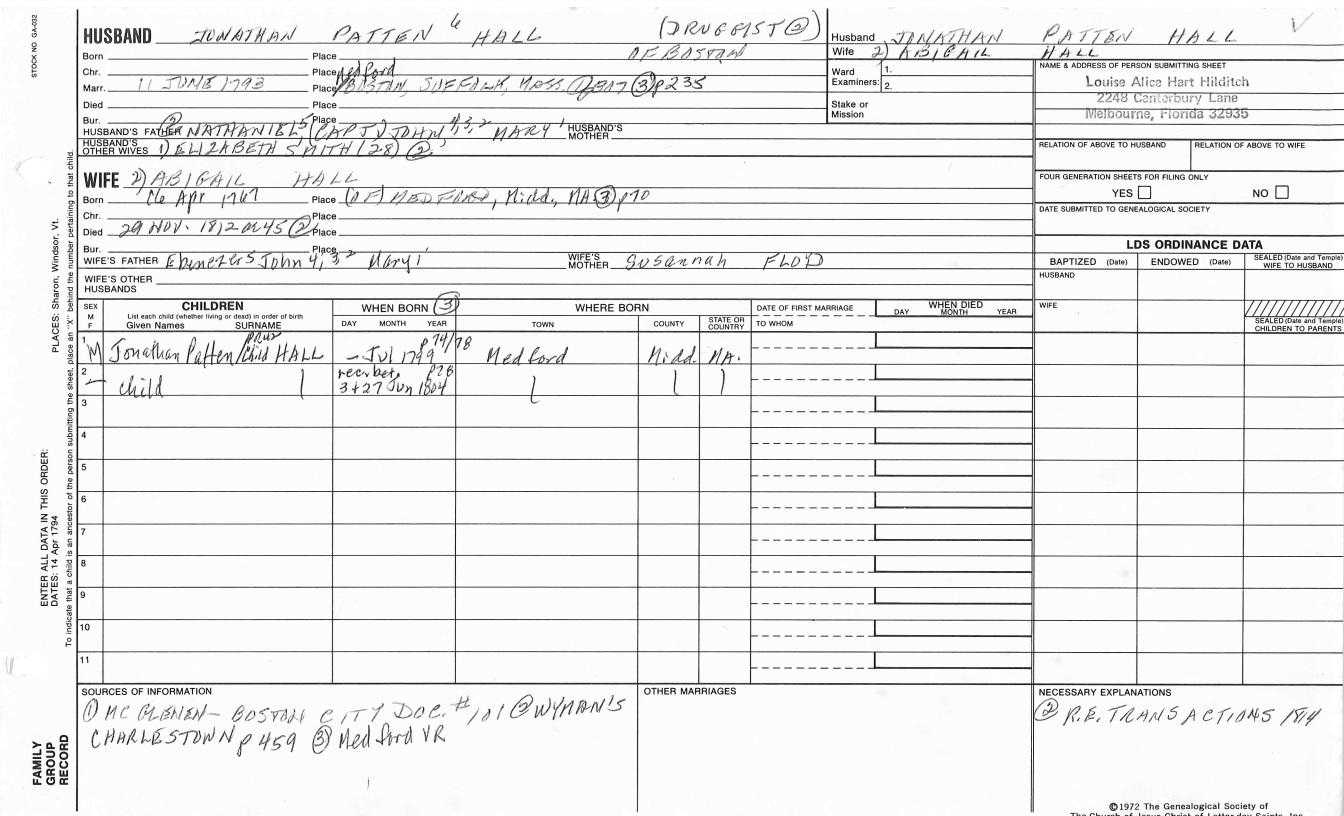 STOCK NO. GA-032
HUSBAND JONATHAN PATTEN 6 HALL (DRUGGIST ②)
Born Place OF BOSTON
Chr. Place Medford
Marr. 11 JUNE 1793 Place BOSTON, SUFFOLK, MASS. ① ③ p235
Died Place
Bur. Place
HUSBAND'S FATHER ② NATHANIEL 5 (CAPT) JOHN 4,3,2 MARY 1 HUSBAND'S MOTHER
HUSBAND'S OTHER WIVES 1) ELIZABETH SMITH (28) ②
Husband JONATHAN PATTEN HALL
Wife 2) ABIGAIL HALL
Ward Examiners: 1.
2.
Stake or Mission
NAME & ADDRESS OF PERSON SUBMITTING SHEET
Louise Alice Hart Hilditch
2248 Canterbury Lane
Melbourne, Florida 32935
RELATION OF ABOVE TO HUSBAND RELATION OF ABOVE TO WIFE
FOUR GENERATION SHEETS FOR FILING ONLY
YES NO
DATE SUBMITTED TO GENEALOGICAL SOCIETY
WIFE 2) ABIGAIL HALL
Born Apr 1767 Place (OF) MEDFORD, Midd., MA ③ p70
Chr. Place
Died 29 NOV. 1812 ae 45 ② Place
Bur. Place
WIFE'S FATHER Ebenezer 5 John 4,3,2 Mary 1 WIFE'S MOTHER Susannah FLOYD
WIFE'S OTHER HUSBANDS
LDS ORDINANCE DATA
BAPTIZED (Date) ENDOWED (Date) SEALED (Date and Temple) WIFE TO HUSBAND
HUSBAND
WIFE
SEALED (Date and Temple) CHILDREN TO PARENTS
SEX M F CHILDREN WHEN BORN ③ WHERE BORN DATE OF FIRST MARRIAGE WHEN DIED
List each child (whether living or dead) in order of birth
Given Names SURNAME DAY MONTH YEAR TOWN COUNTY STATE OR COUNTRY TO WHOM DAY MONTH YEAR
1 M Jonathan Patten/Child HALL - Jul 1799 p74/78 Medford Midd. MA.
2 - Child rec. bet. 3+27 Jun 1804 p78
3
4
5
6
7
8
9
10
11
PLACES: Sharon, Windsor, Vt.
ENTER ALL DATA IN THIS ORDER:
DATES: 14 Apr 1794
To indicate that a child is an ancestor of the person submitting the sheet, place an "X" behind the number pertaining to that child.
FAMILY GROUP RECORD
SOURCES OF INFORMATION
① MC GLENEN - BOSTON CITY DOC. #101 ② WYMAN'S
CHARLESTOWN p 459 ③ Medford VR
OTHER MARRIAGES
NECESSARY EXPLANATIONS
② R.E. TRANSACTIONS 1814
©1972 The Genealogical Society of
The Church of Jesus Christ of Latter-day Saints, Inc.